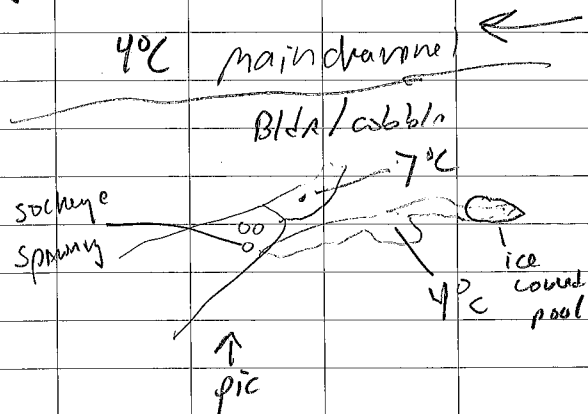 4°C main channel
Bldr/cobble
7°C
sockeye
spawning
4°C
ice
covered
pool
pic